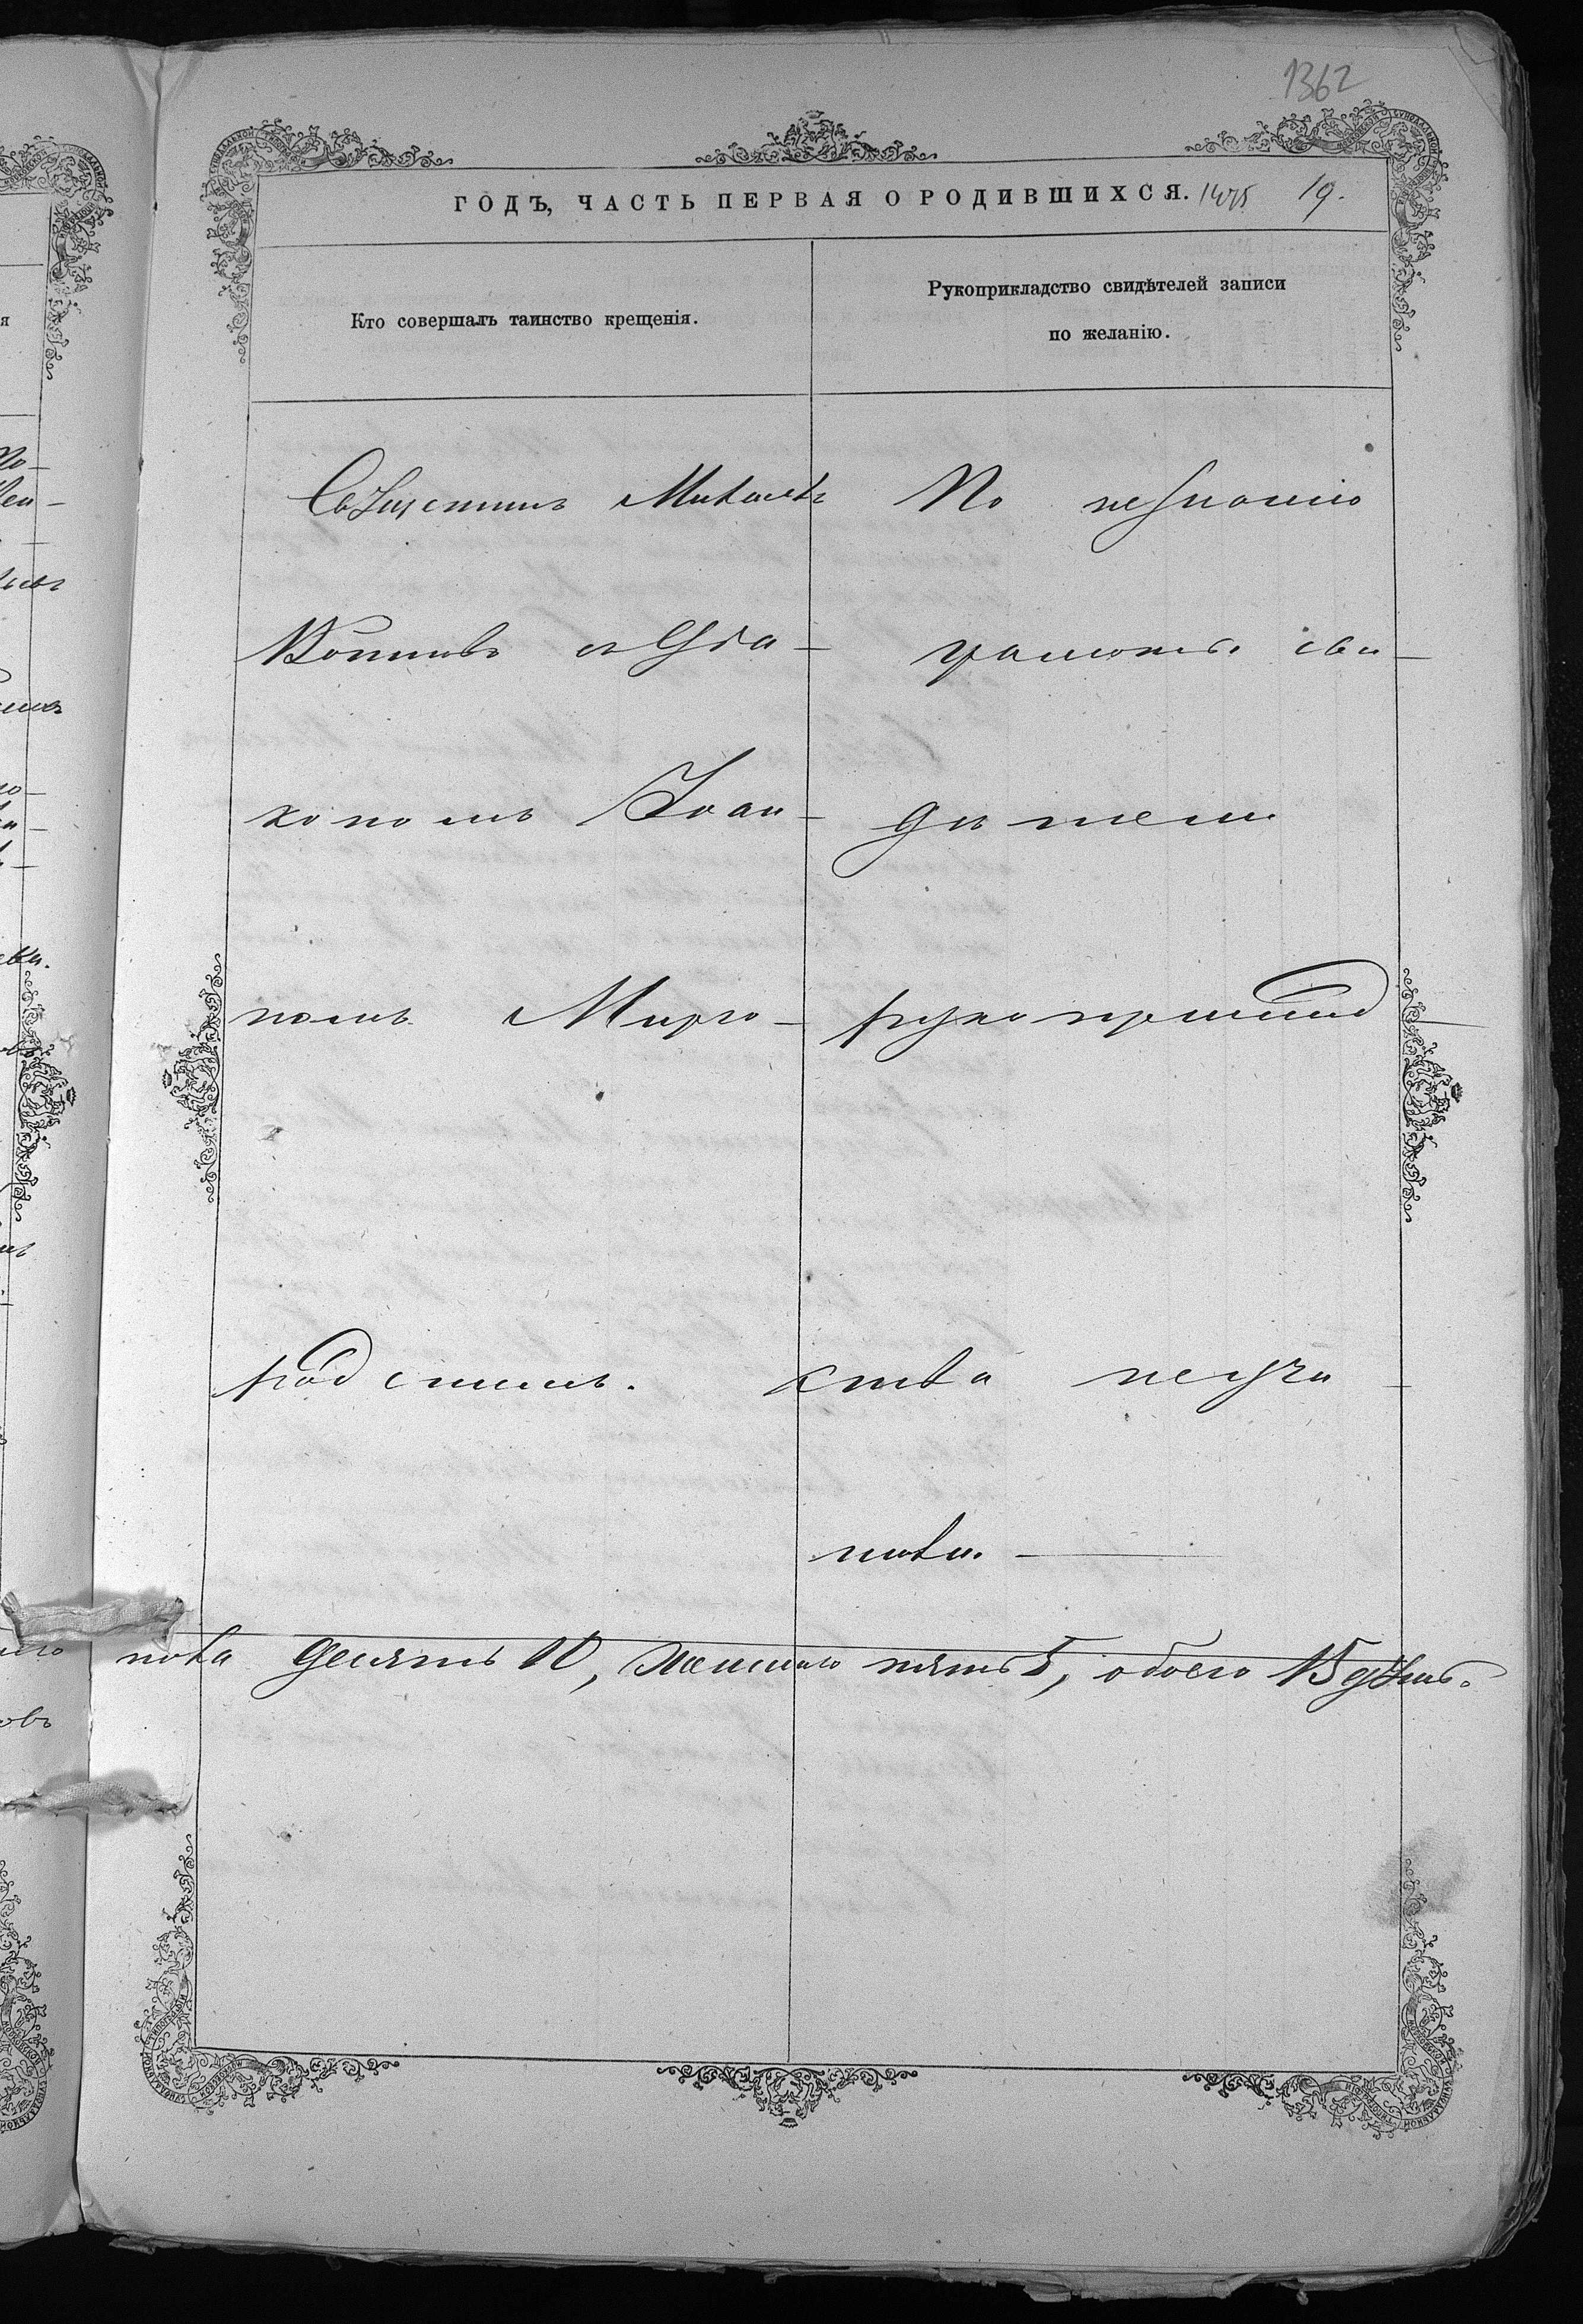 1362
ГОДЪ, ЧАСТЬ ПЕРВАЯ О РОДИВШИХСЯ. 1475 19.
Кто совершалъ таинство крещенія.
Рукоприкладство свидѣтелей записи
по желанію.
Священникъ Михаилъ
съ Діа-
кономъ Іоан-
номъ Миро-
По незнанію
грамоты сви-
дѣтели
рукоприклад
ства неучи
нили.
десять 10, женскаго пять 5, обоего 15 душъ.